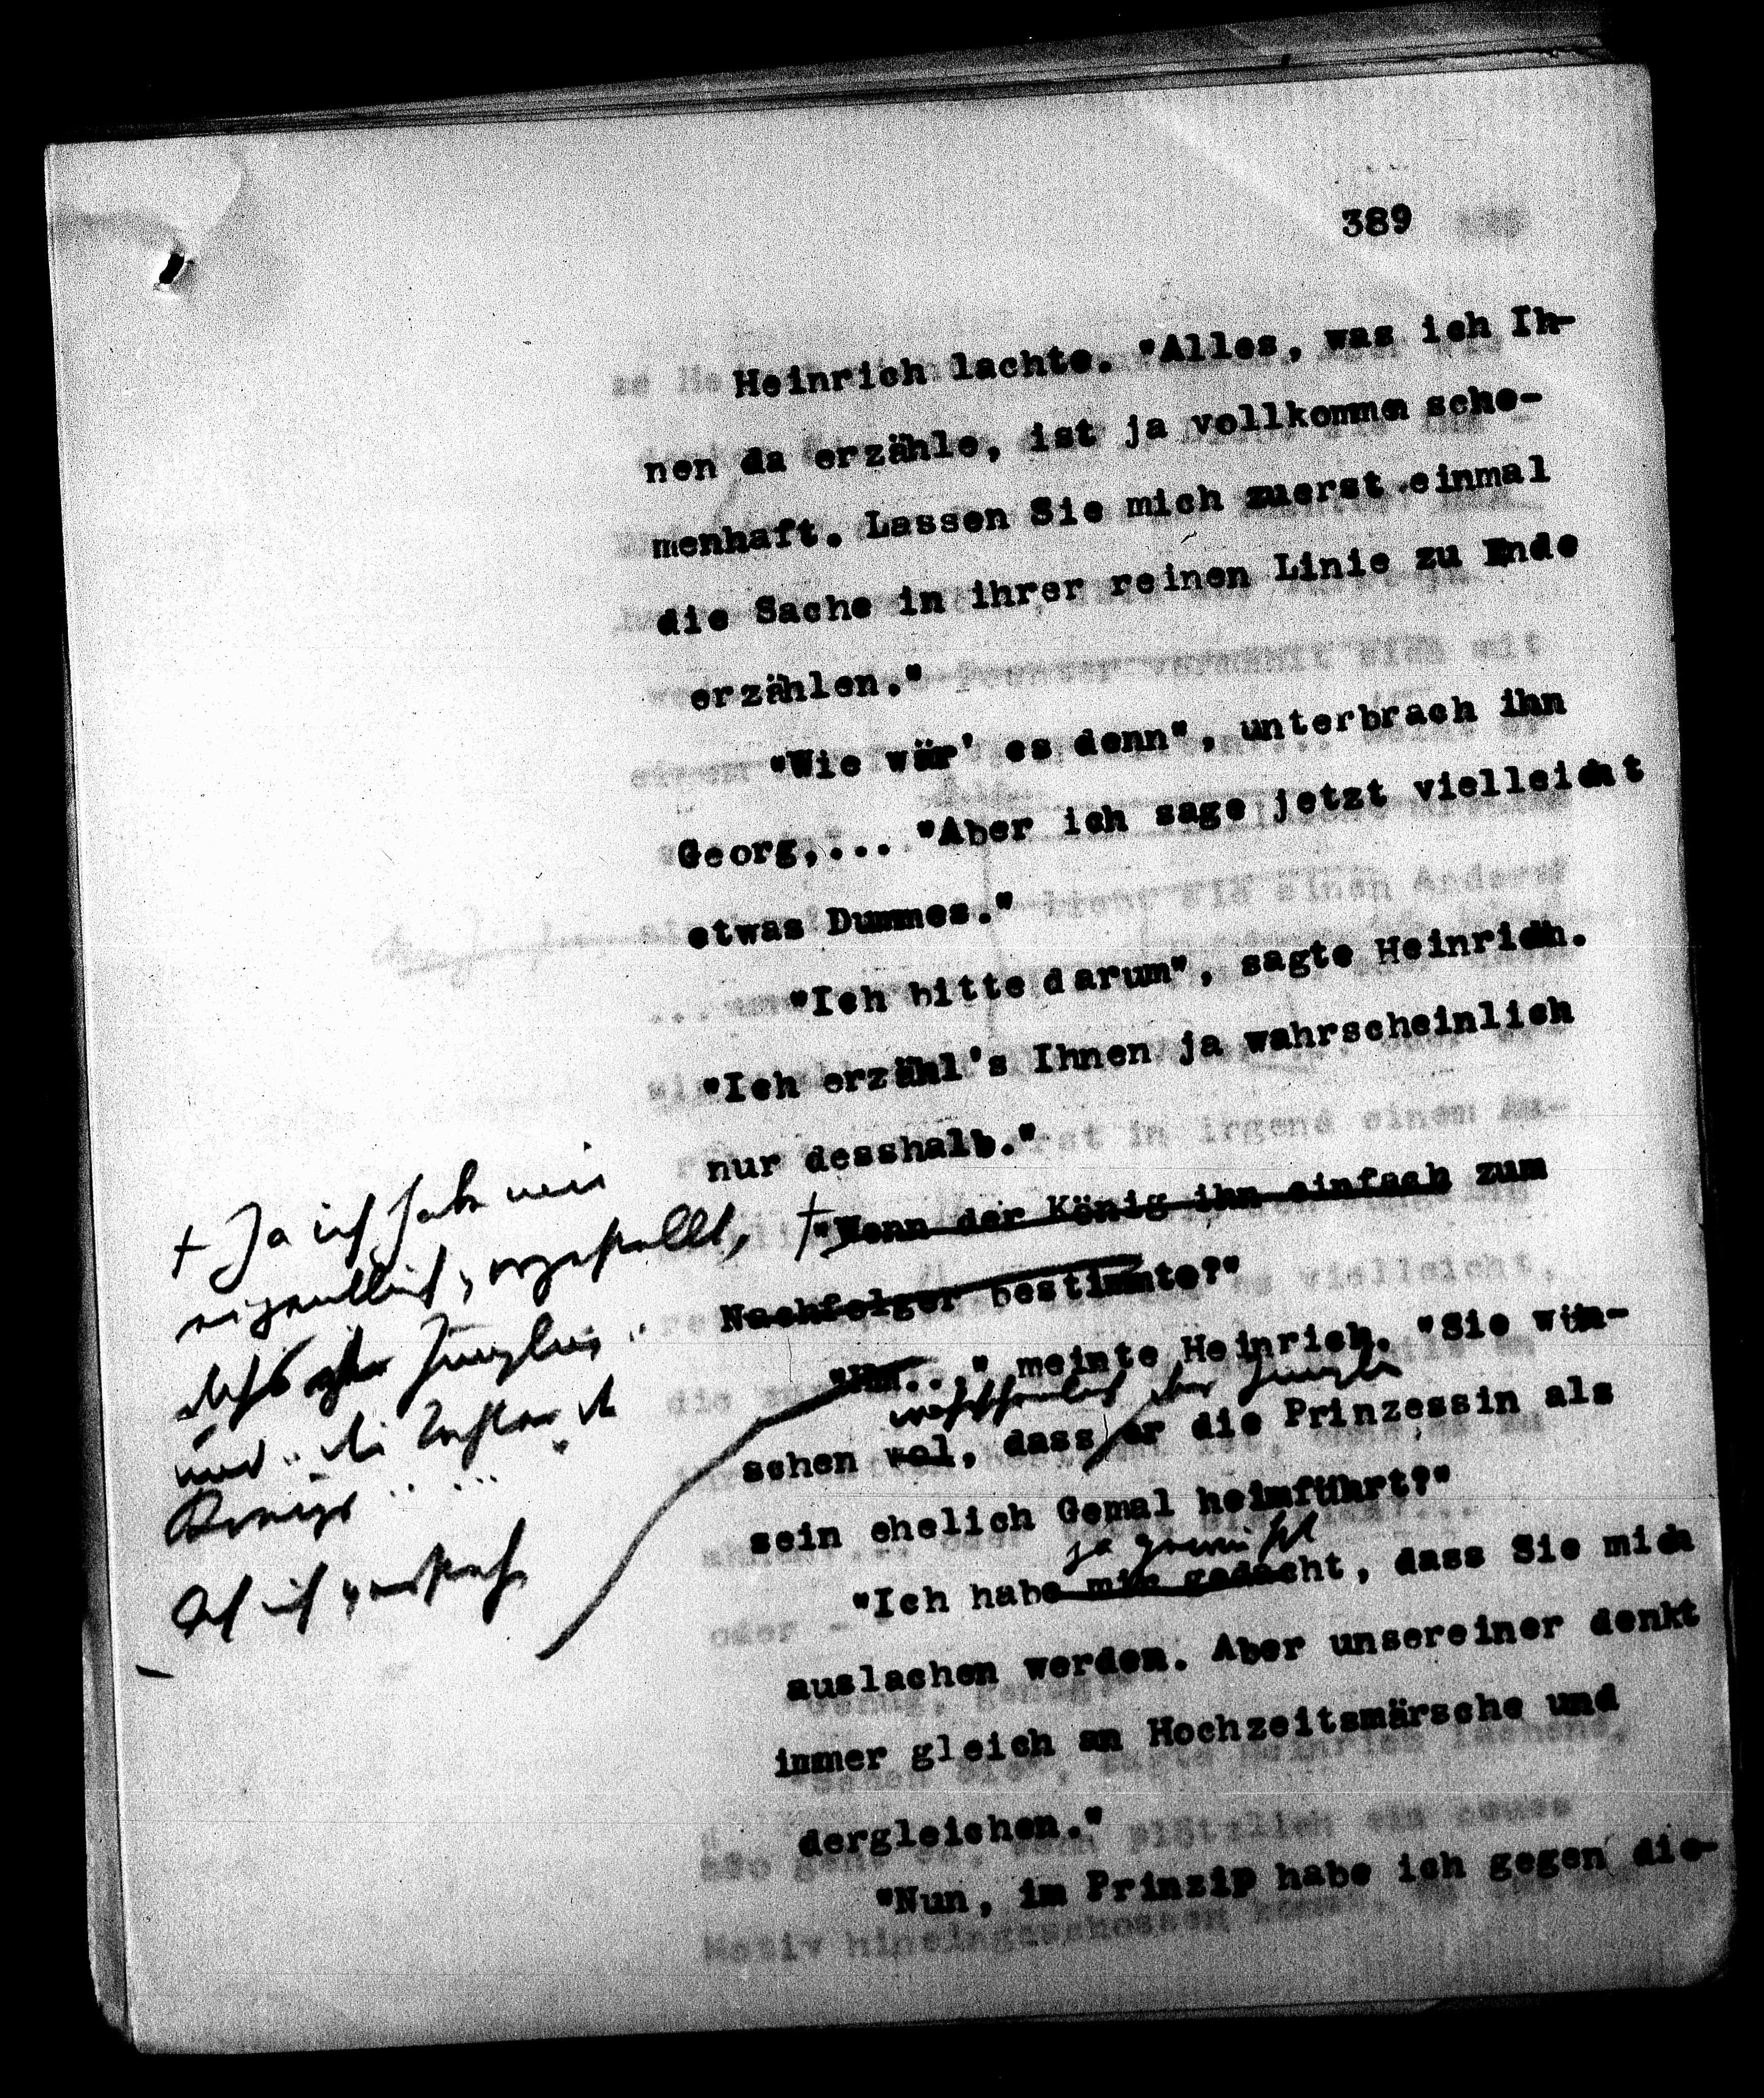 389
Heinrich lachte. "Alles, was ich Ih-
nen da erzähle, ist ja vollkommen sche-
menhaft. Lassen Sie mich zuerst einmal
die Sache in ihrer reinen Linie zu Ende
erzählen."
"Wie wär' es denn", unterbrach ihn
Georg,... "Aber ich sage jetzt vielleicht
etwas Dummes."
"Ich bitte darum", sagte Heinrich.
"Ich erzähl's Ihnen ja wahrscheinlich
nur desshalb."
+ Ja ich habe mir
eigentlich vorgestellt,
Jüngling
und die
Königs .....
+ "Wenn der König ihn einfach zum
Nachfolger bestimmte?"
"Hm..." meinte Heinrich. "Sie wün-
wahrscheinlich der Jüngling
schen wol, dass er die Prinzessin als
sein ehelich Gemal heimführt?"
ja gewusst
"Ich habe mir gedacht, dass Sie mich
auslachen werden. Aber unsereiner denkt
immer gleich an Hochzeitsmärsche und
dergleichen."
"Nun, im Prinzip habe ich gegen die-